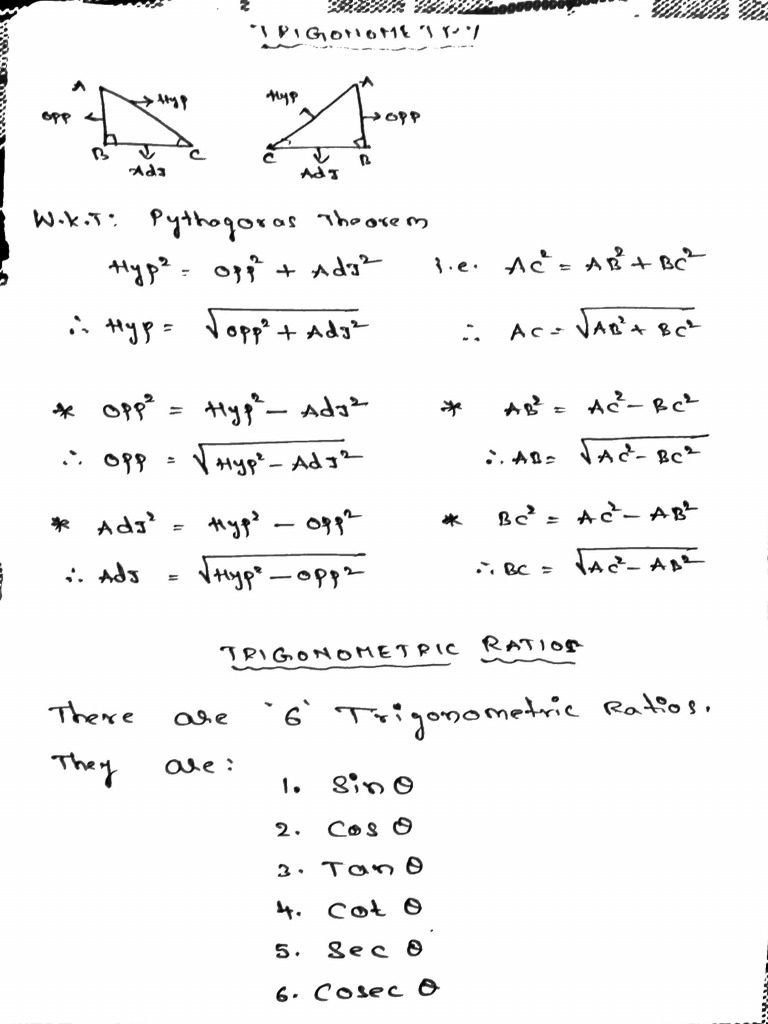 TRIGONOMETRY
A Hyp Hyp A
OPP OPP
B C C B
Adj Adj
W.K.T: Pythagoras Theorem
Hyp² = OPP² + Adj² i.e. AC² = AB² + BC²
∴ Hyp = √OPP² + Adj² ∴ AC = √AB² + BC²
* OPP² = Hyp² − Adj² * AB² = AC² − BC²
∴ OPP = √Hyp² − Adj² ∴ AB = √AC² − BC²
* Adj² = Hyp² − OPP² * BC² = AC² − AB²
∴ Adj = √Hyp² − OPP² ∴ BC = √AC² − AB²
TRIGONOMETRIC RATIOS
There are '6' Trigonometric Ratios.
They are:
1. Sin θ
2. Cos θ
3. Tan θ
4. Cot θ
5. Sec θ
6. Cosec θ